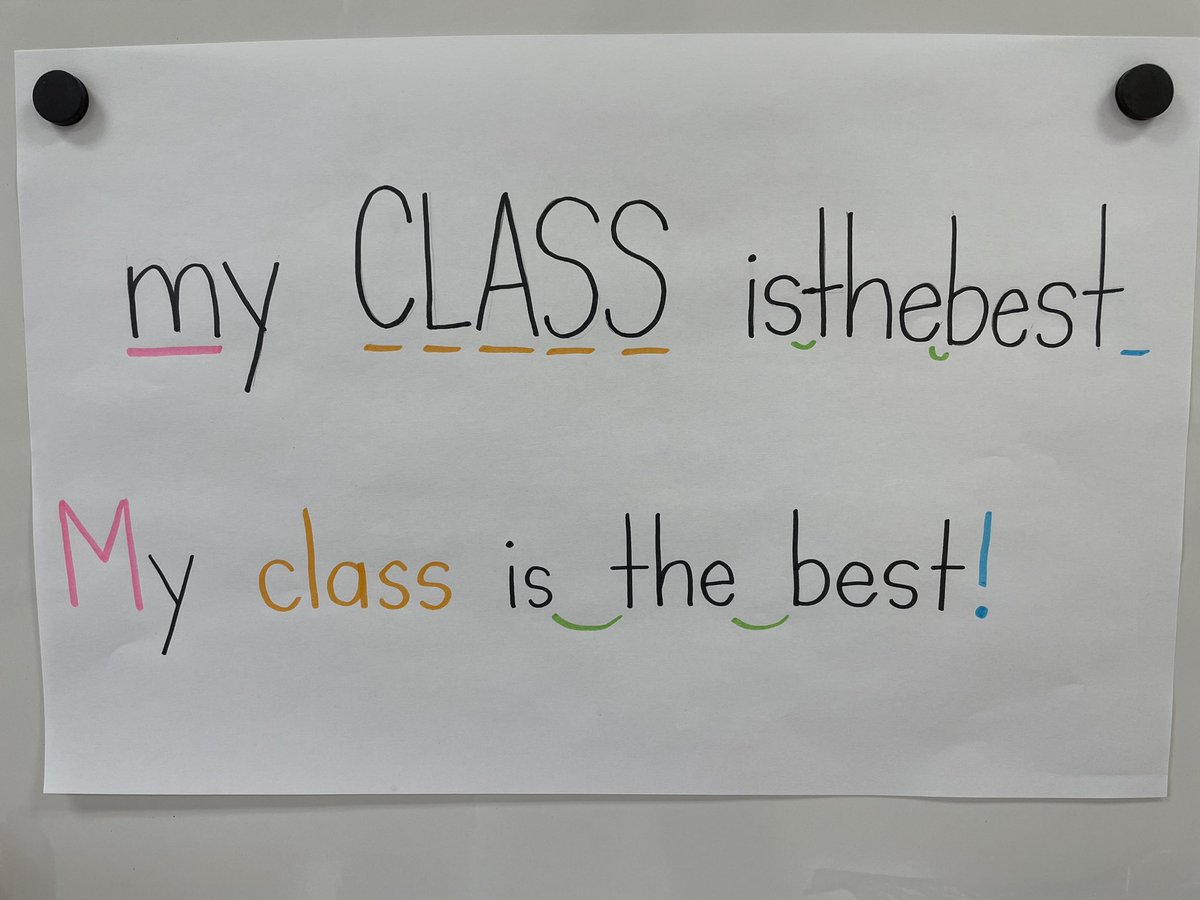 my CLASS isthebest
My class is the best!